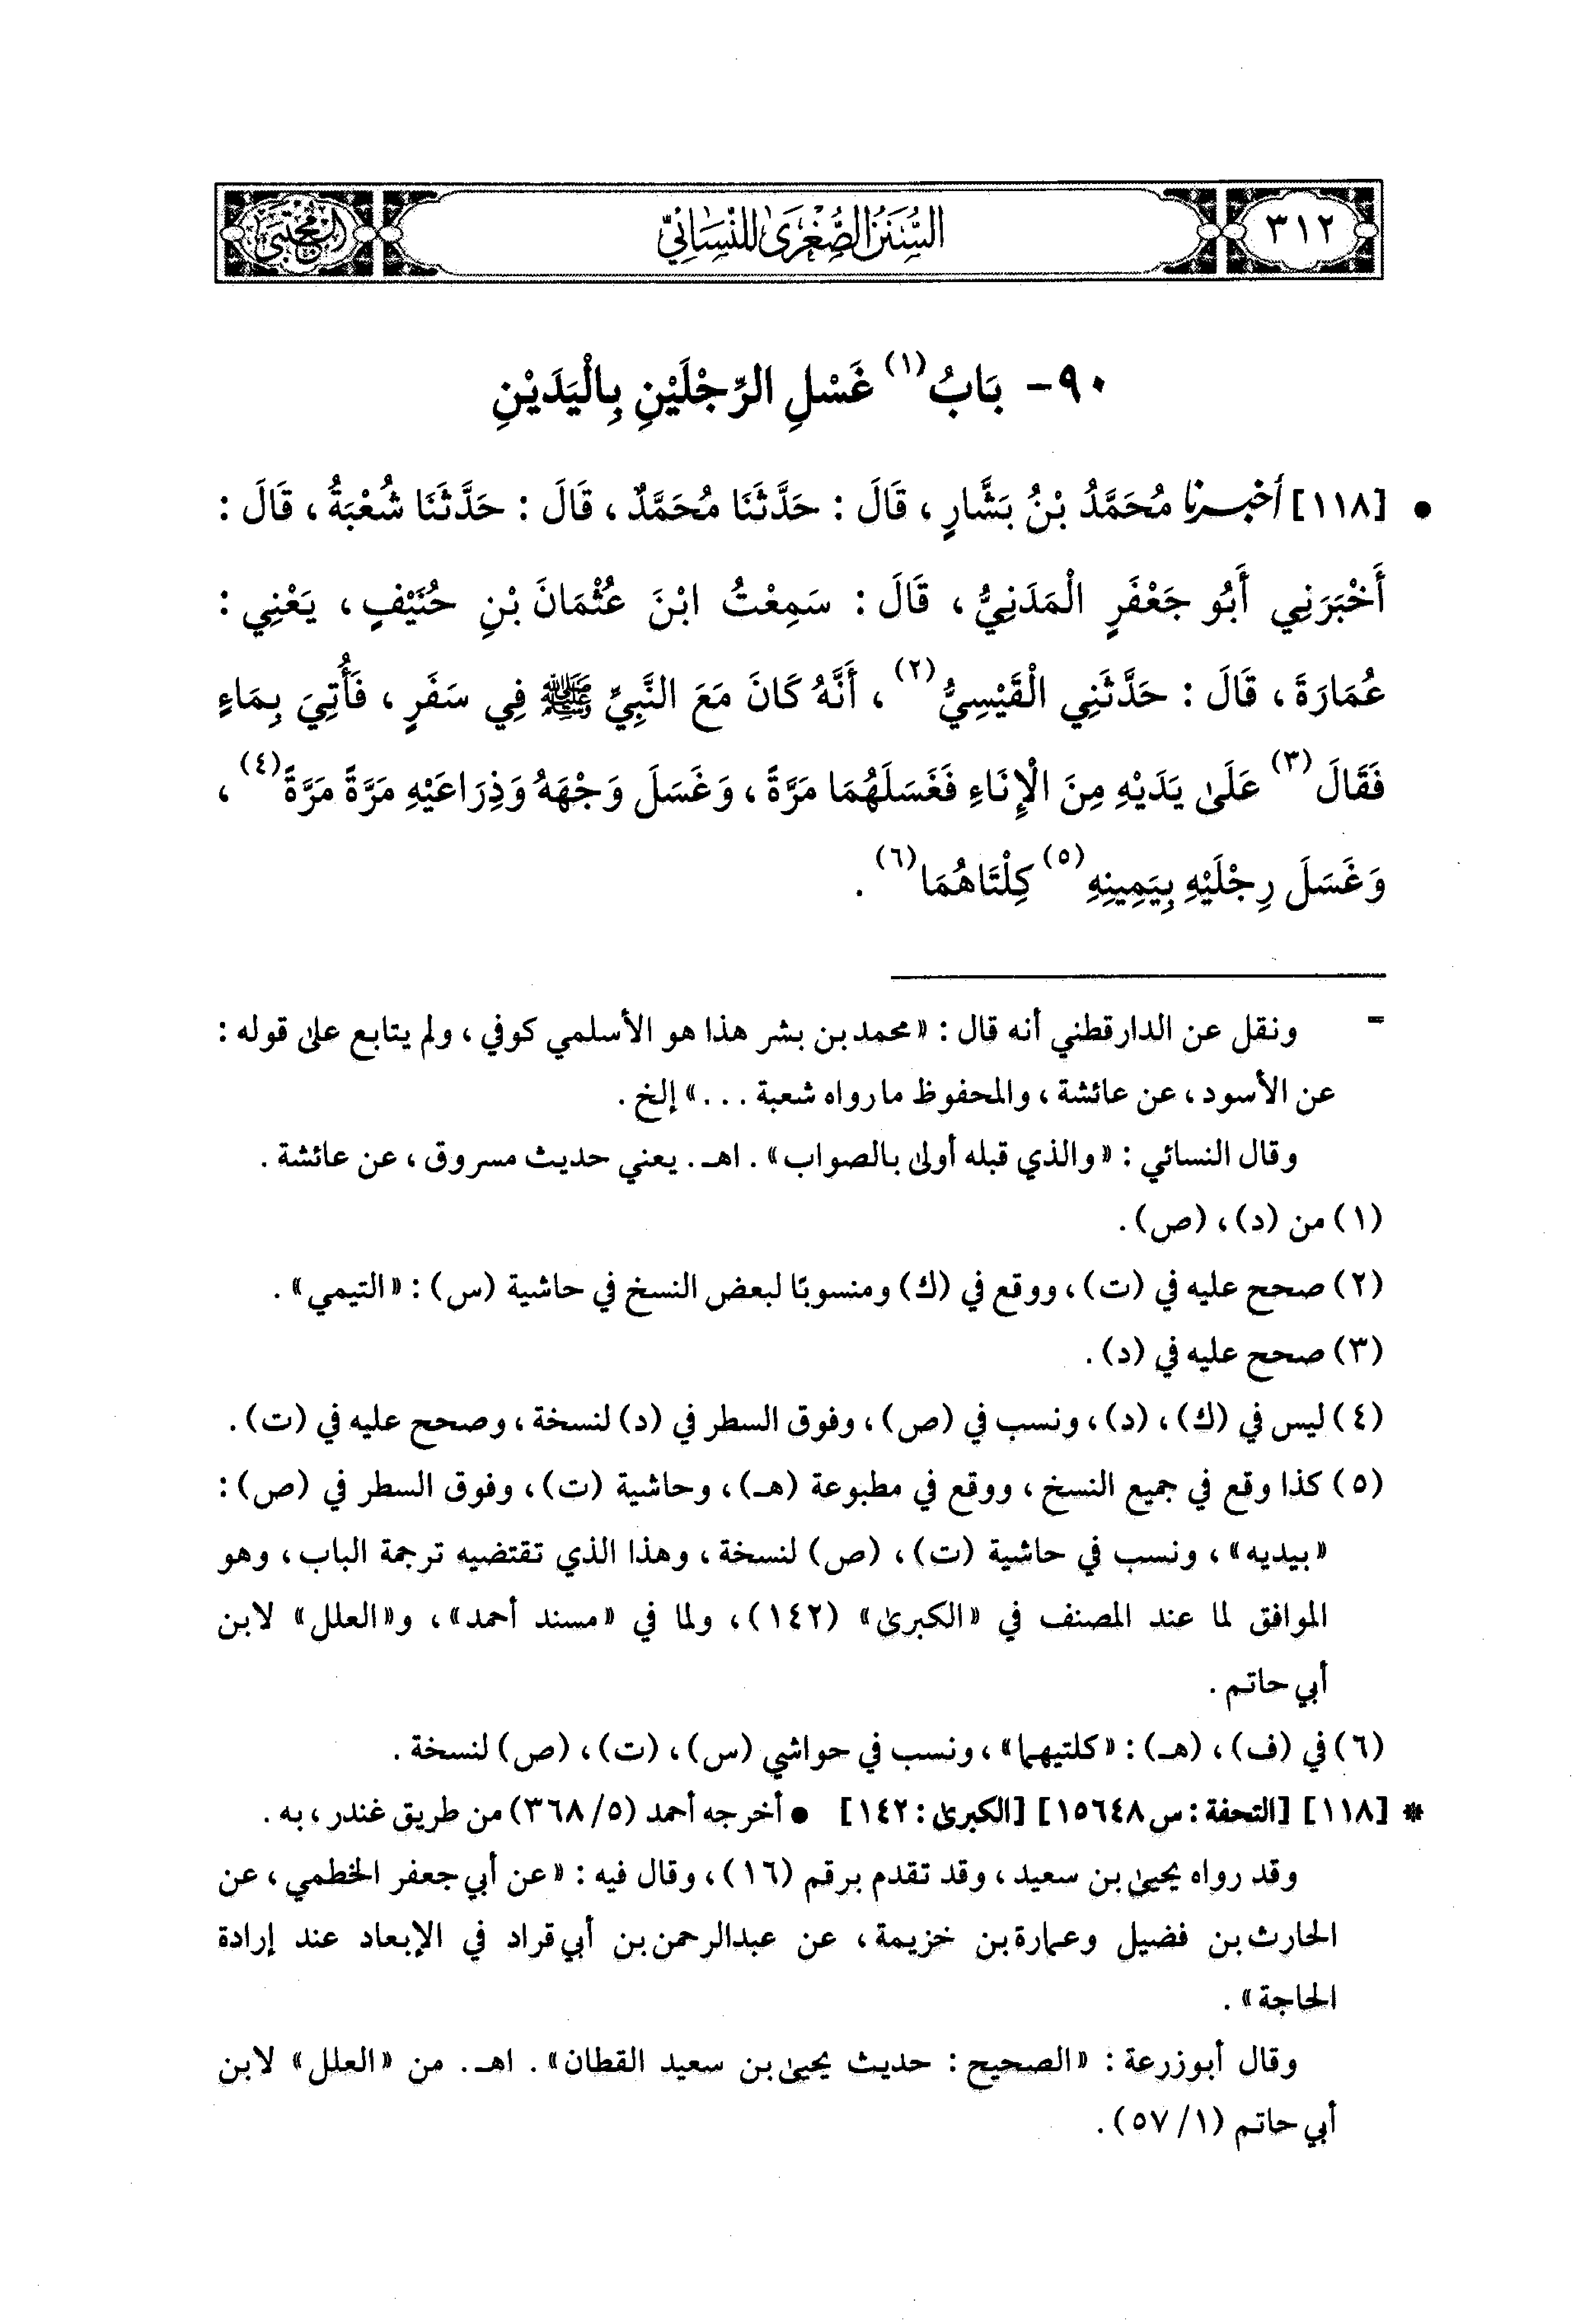 ٣١٢
السُّنَنُ الصُّغْرَىٰ لِلنَّسَائِيِّ
المجتبى
٩٠- بَابُ(١) غَسْلِ الرِّجْلَيْنِ بِالْيَدَيْنِ
• [١١٨] أخبرنا مُحَمَّدُ بْنُ بَشَّارٍ، قَالَ: حَدَّثَنَا مُحَمَّدٌ، قَالَ: حَدَّثَنَا شُعْبَةُ، قَالَ:
أَخْبَرَنِي أَبُو جَعْفَرٍ الْمَدَنِيُّ، قَالَ: سَمِعْتُ ابْنَ عُثْمَانَ بْنِ حُنَيْفٍ، يَعْنِي:
عُمَارَةَ، قَالَ: حَدَّثَنِي الْقَيْسِيُّ(٢)، أَنَّهُ كَانَ مَعَ النَّبِيِّ ﷺ فِي سَفَرٍ، فَأُتِيَ بِمَاءٍ
فَقَالَ(٣) عَلَىٰ يَدَيْهِ مِنَ الْإِنَاءِ فَغَسَلَهُمَا مَرَّةً، وَغَسَلَ وَجْهَهُ وَذِرَاعَيْهِ مَرَّةً مَرَّةً(٤)،
وَغَسَلَ رِجْلَيْهِ بِيَمِينِهِ(٥) كِلْتَاهُمَا(٦).
= ونقل عن الدارقطني أنه قال: «محمد بن بشر هذا هو الأسلمي كوفي، ولم يتابع علىٰ قوله:
عن الأسود، عن عائشة، والمحفوظ ما رواه شعبة ...» إلخ.
وقال النسائي: «والذي قبله أولىٰ بالصواب». اهـ. يعني حديث مسروق، عن عائشة.
(١) من (د)، (ص).
(٢) صحح عليه في (ت)، ووقع في (ك) ومنسوبًا لبعض النسخ في حاشية (س): «التيمي».
(٣) صحح عليه في (د).
(٤) ليس في (ك)، (د)، ونسب في (ص)، وفوق السطر في (د) لنسخة، وصحح عليه في (ت).
(٥) كذا وقع في جميع النسخ، ووقع في مطبوعة (هـ)، وحاشية (ت)، وفوق السطر في (ص):
«بيديه»، ونسب في حاشية (ت)، (ص) لنسخة، وهذا الذي تقتضيه ترجمة الباب، وهو
الموافق لما عند المصنف في «الكبرىٰ» (١٤٢)، ولما في «مسند أحمد»، و«العلل» لابن
أبي حاتم.
(٦) في (ف)، (هـ): «كلتيهما»، ونسب في حواشي (س)، (ت)، (ص) لنسخة.
* [١١٨] [التحفة: س ١٥٦٤٨] [الكبرىٰ: ١٤٢] • أخرجه أحمد (٥/ ٣٦٨) من طريق غندر، به.
وقد رواه يحيىٰ بن سعيد، وقد تقدم برقم (١٦)، وقال فيه: «عن أبي جعفر الخطمي، عن
الحارث بن فضيل وعمارة بن خزيمة، عن عبدالرحمن بن أبي قراد في الإبعاد عند إرادة
الحاجة».
وقال أبوزرعة: «الصحيح: حديث يحيىٰ بن سعيد القطان». اهـ. من «العلل» لابن
أبي حاتم (١/ ٥٧).